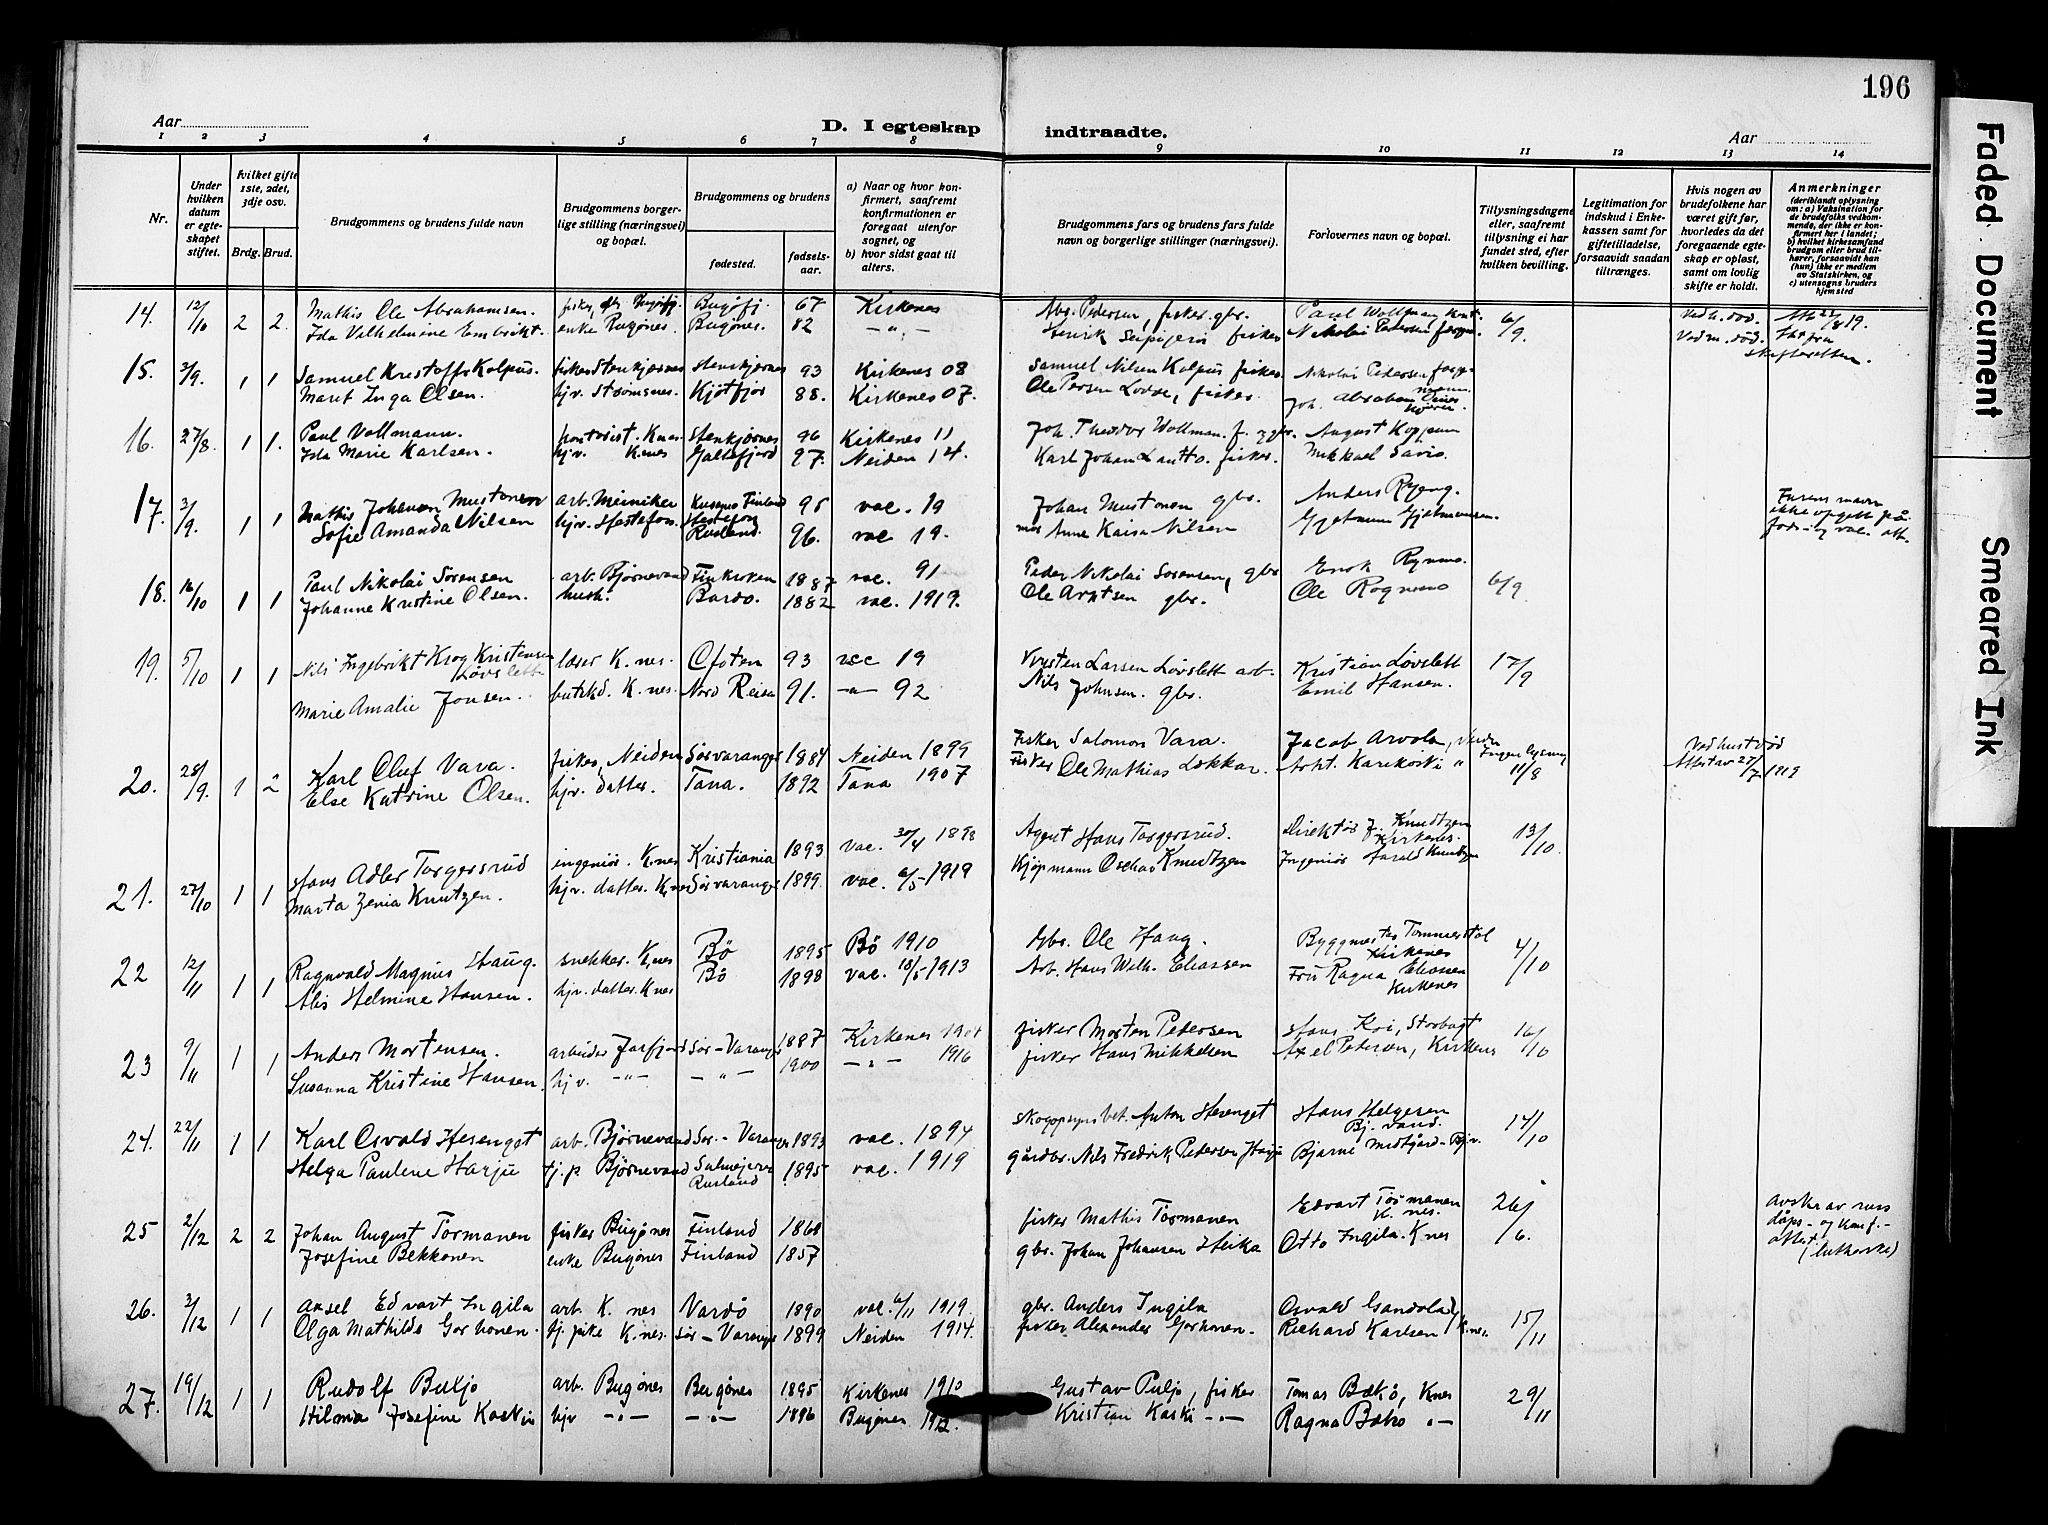 196
Aar
D. I egteskap indtraadte.
Aar
1 2 3 4 5 6 7 8 9 10 11 12 13 14
Nr.
Under hvilken datum er egteskapet stiftet.
Hvilket gifte 1ste, 2det, 3dje osv.
Brdg. Brud.
Brudgommens og brudens fulde navn
Brudgommens borgerlige stilling (næringsvei) og bopæl.
Brudgommens og brudens
fødested.
fødselsaar.
a) Naar og hvor konfirmert, saafremt konfirmationen er foregaat utenfor sognet, og
b) hvor sidst gaat til alters.
Brudgommens fars og brudens fars fulde navn og borgerlige stillinger (næringsvei).
Forlovernes navn og bopæl.
Tillysningsdagene eller, saafremt tillysning ei har fundet sted, efter hvilken bevilling.
Legitimation for indskud i Enkekassen samt for giftetilladelse, forsaavidt saadan tiltrænges.
Hvis nogen av brudefolkene har været gift før, hvorledes da det foregaaende egteskap er opløst, samt om lovlig skifte er holdt.
Anmerkninger (deriblandt oplysning om: a) Vaksination for de brudefolks vedkommende, der ikke er konfirmert her i landet; b) hvilket kirkesamfund brudgom eller brud tilhører, forsaavidt han (hun) ikke er medlem av Statskirken, og c) utensogns bruders hjemsted
14. 12/10 2 2. Mathis Ole Abrahamsen. Bugøfj. 67 Kirkenes Abr. Pedersen, fisker, gbr. Paul Wollman 6/9 Ved h. død.
Ida Vilhelmine Embrikt. enke Bugønes. Bugønes. 82 — „ — Henrik fisker Nikolai Pedersen Ved m. død.
skifteretten.
15. 3/9. 1 1 Samuel Kristoffs Kolpus. fisker Stenkjærnes Stenkjernes 93 Kirkenes 08 Samuel Nilsen Kolpus fisker Nikolai Pedersen
Maret Inga Olsen. hjv. Strømsnes. Kjøtfjor 88. Kirkenes 07. Ole Persen fisker. Joh. Abraham
16. 27/8. 1 1. Paul Vollmann. K.nes. Stenkjernes 96 Kirkenes 11 Joh. Theodor Wollman. August Koppum
Ida Marie Karlsen. hjv. K.nes 97. Neiden 14. Karl Johan Lantto. fisker. Mikkael Savio.
17. 3/9. 1 1 Mathis Johansen Mustonen arb. Finland 95 vac. 19 Johan Mustonen gbr. Anders Ryeng.
Sofie Amanda Nilsen hjv. Rusland. 96. vac 19. mor Anne Kaisa Nilsen
ikke opgett på
18. 16/10 1 1 Paul Nikolai Sørensen arb. Bjørnevand Finkroken 1887 vac. 91 Peder Nikolai Sørensen, gbr Enok Rynmo. 6/9
Johanne Kristine Olsen. hush. Bardo. 1882 vac. 1919. Ole Arntsen gbr. Ole Rognmo
19. 5/10 1 1 Nils Ingebrikt Krog Kristensen Løvslett læser K.nes. Ofoten 93 vac 19 Larsen Løvslett arb. Kristian Løvslett 17/9
Marie Amalie Jonsen. K.nes. Nord Reisa 91. —„— 92 Nils Johnsen. gbr. Emil Hansen.
20. 28/9. 1 2 Karl Oluf Vara. fisker, Neiden Sørvaranger 1884 Neiden 1899 Fisker Salomon Vara. Jacob Arvola, Neiden Ingen lysning 11/8 Ved hust død
Else Katrine Olsen. hjv. datter. Tana. 1892 Tana 1907 Fisker Ole Mathias Lokkar. Karikoski „ Attest av 27/7 1919
21. 27/10 1 1 Hans Adler Torgersrud ingeniør. K.nes Kristiania 1893 vac. 30/4 1898 Agent Hans Torgersrud. Direktør J. Knudtzen Kirkenes. 13/10.
Marta Zenia Knutzen. hjv. datter. K.nes Sørvaranger 1899. vac. 6/5 1919 Kjøpmann Oschar Knudtzen Ingeniør Harald Knudtzen
22 12/11 1 1 Ragnvald Magnus Haug. snekker. K.nes Bø 1895 Bø 1910 Gbr. Ole Haug. Byggmester Tommerstøl Kirkenes 4/10
Alis Helmine Hansen. hjv. datter. K.nes Bø 1898 vac. 18/5 1913 Arb. Hans Wilh. Eliassen Fru Ragna Eliassen Kirkenes
23 9/11 1 1 Anders Mortensen. arbeider Jarfjord Sør-Varanger 1887 Kirkenes 1904 fisker Morten Pedersen Hans Kvi, Storbugt 16/10
Susanna Kristine Hansen. hjv. —„— —„— 1900 —„— 1916 fisker Hans Mikkelsen Axel Petersen, Kirkenes
24. 22/11 1 1 Karl Osvald Hesenget arb. Bjørnevand Sør-Varanger 1893 vac. 1894 skogopsynsbet. Anton Hesenget Hans Helgesen Bj.vand. 14/10
Helga Paulene Harju tj.p Bjørnevand Salmejervi Rusland 1895 vac. 1919 gårdbr. Nils Fredrik Pedersen Harju Bjarne Midtgård - Bjv.
25 2/12 2 2 Johan August Tormanen fisker Bugønes Finland 1868 fisker Mathis Tormanen Edvart Tormanen K.nes. 26/6. avskr av russ dåps- og konf.-attest. (lutherske)
Josefine Bekkonen enke Bugønes Finland 1857 gbr. Johan Johansen Heika Otto Ingila. K.nes
26. 3/12 1 1 Aksel Edvart Ingila arb. K.nes Vardø 1890 vac. 6/11 1919. gbr. Anders Ingila Osvald Gandola 15/11
Olga Mathilde Gorhonen. tj.pike K.nes. Sør-Varanger 1899 Neiden 1914. fisker Alexander Gorhonen. Richard Karlsen K.nes.
27. 19/12 1 1 Rudolf Buljo arb. Bugønes Bugønes 1895 Kirkenes 1910 Gustav Puljo, fisker Tomas Bækø, K.nes 29/11
Hilma Josefine Koskis hjv —„— —„— 1896 Bugønes 1912. Kristian Koski —„— Ragna Bækø „—
Faded Document
Smeared Ink